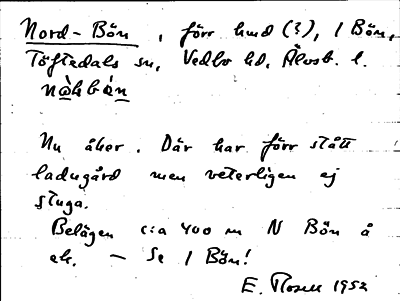 Nord-Bön, förr hmd (?), / Bön,
Töftedals sn, Vedbo hd, Älvsb. l.
Nu åker. Där har förr stått
ladugård men veterligen ej
stuga.
Belägen c:a 400 m N Bön å
ek. — Se / Bön!
E. Rosell 1952